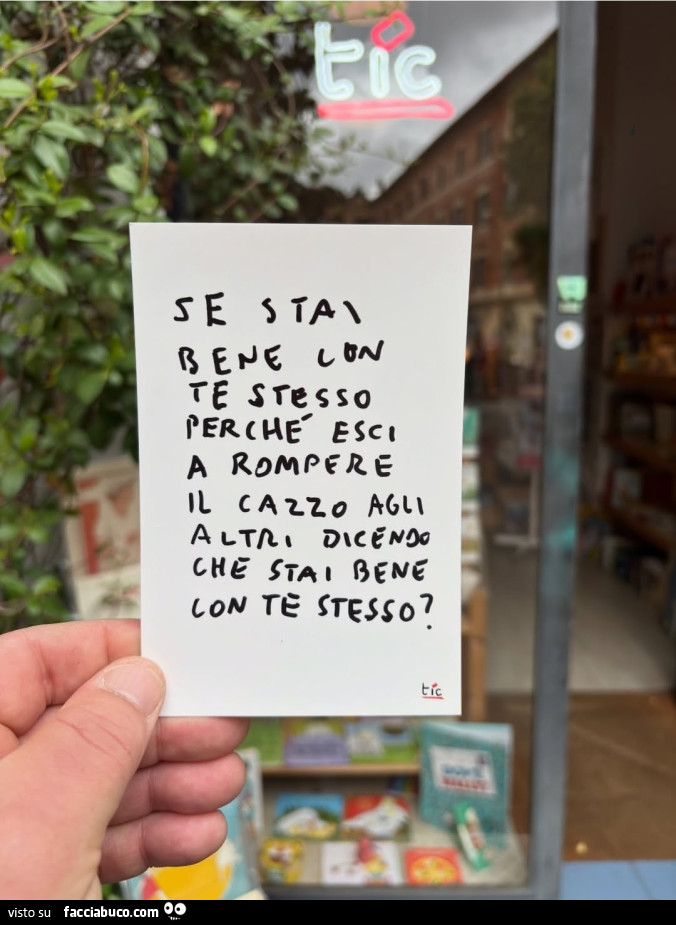 tic
SE STAI
BENE CON
TE STESSO
PERCHÉ ESCI
A ROMPERE
IL CAZZO AGLI
ALTRI DICENDO
CHE STAI BENE
CON TE STESSO?
tic
visto su facciabuco.com